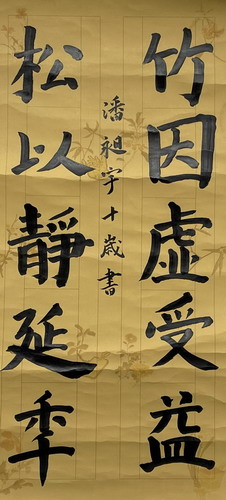 竹因虛受益
松以靜延年
潘昶宇十歲書